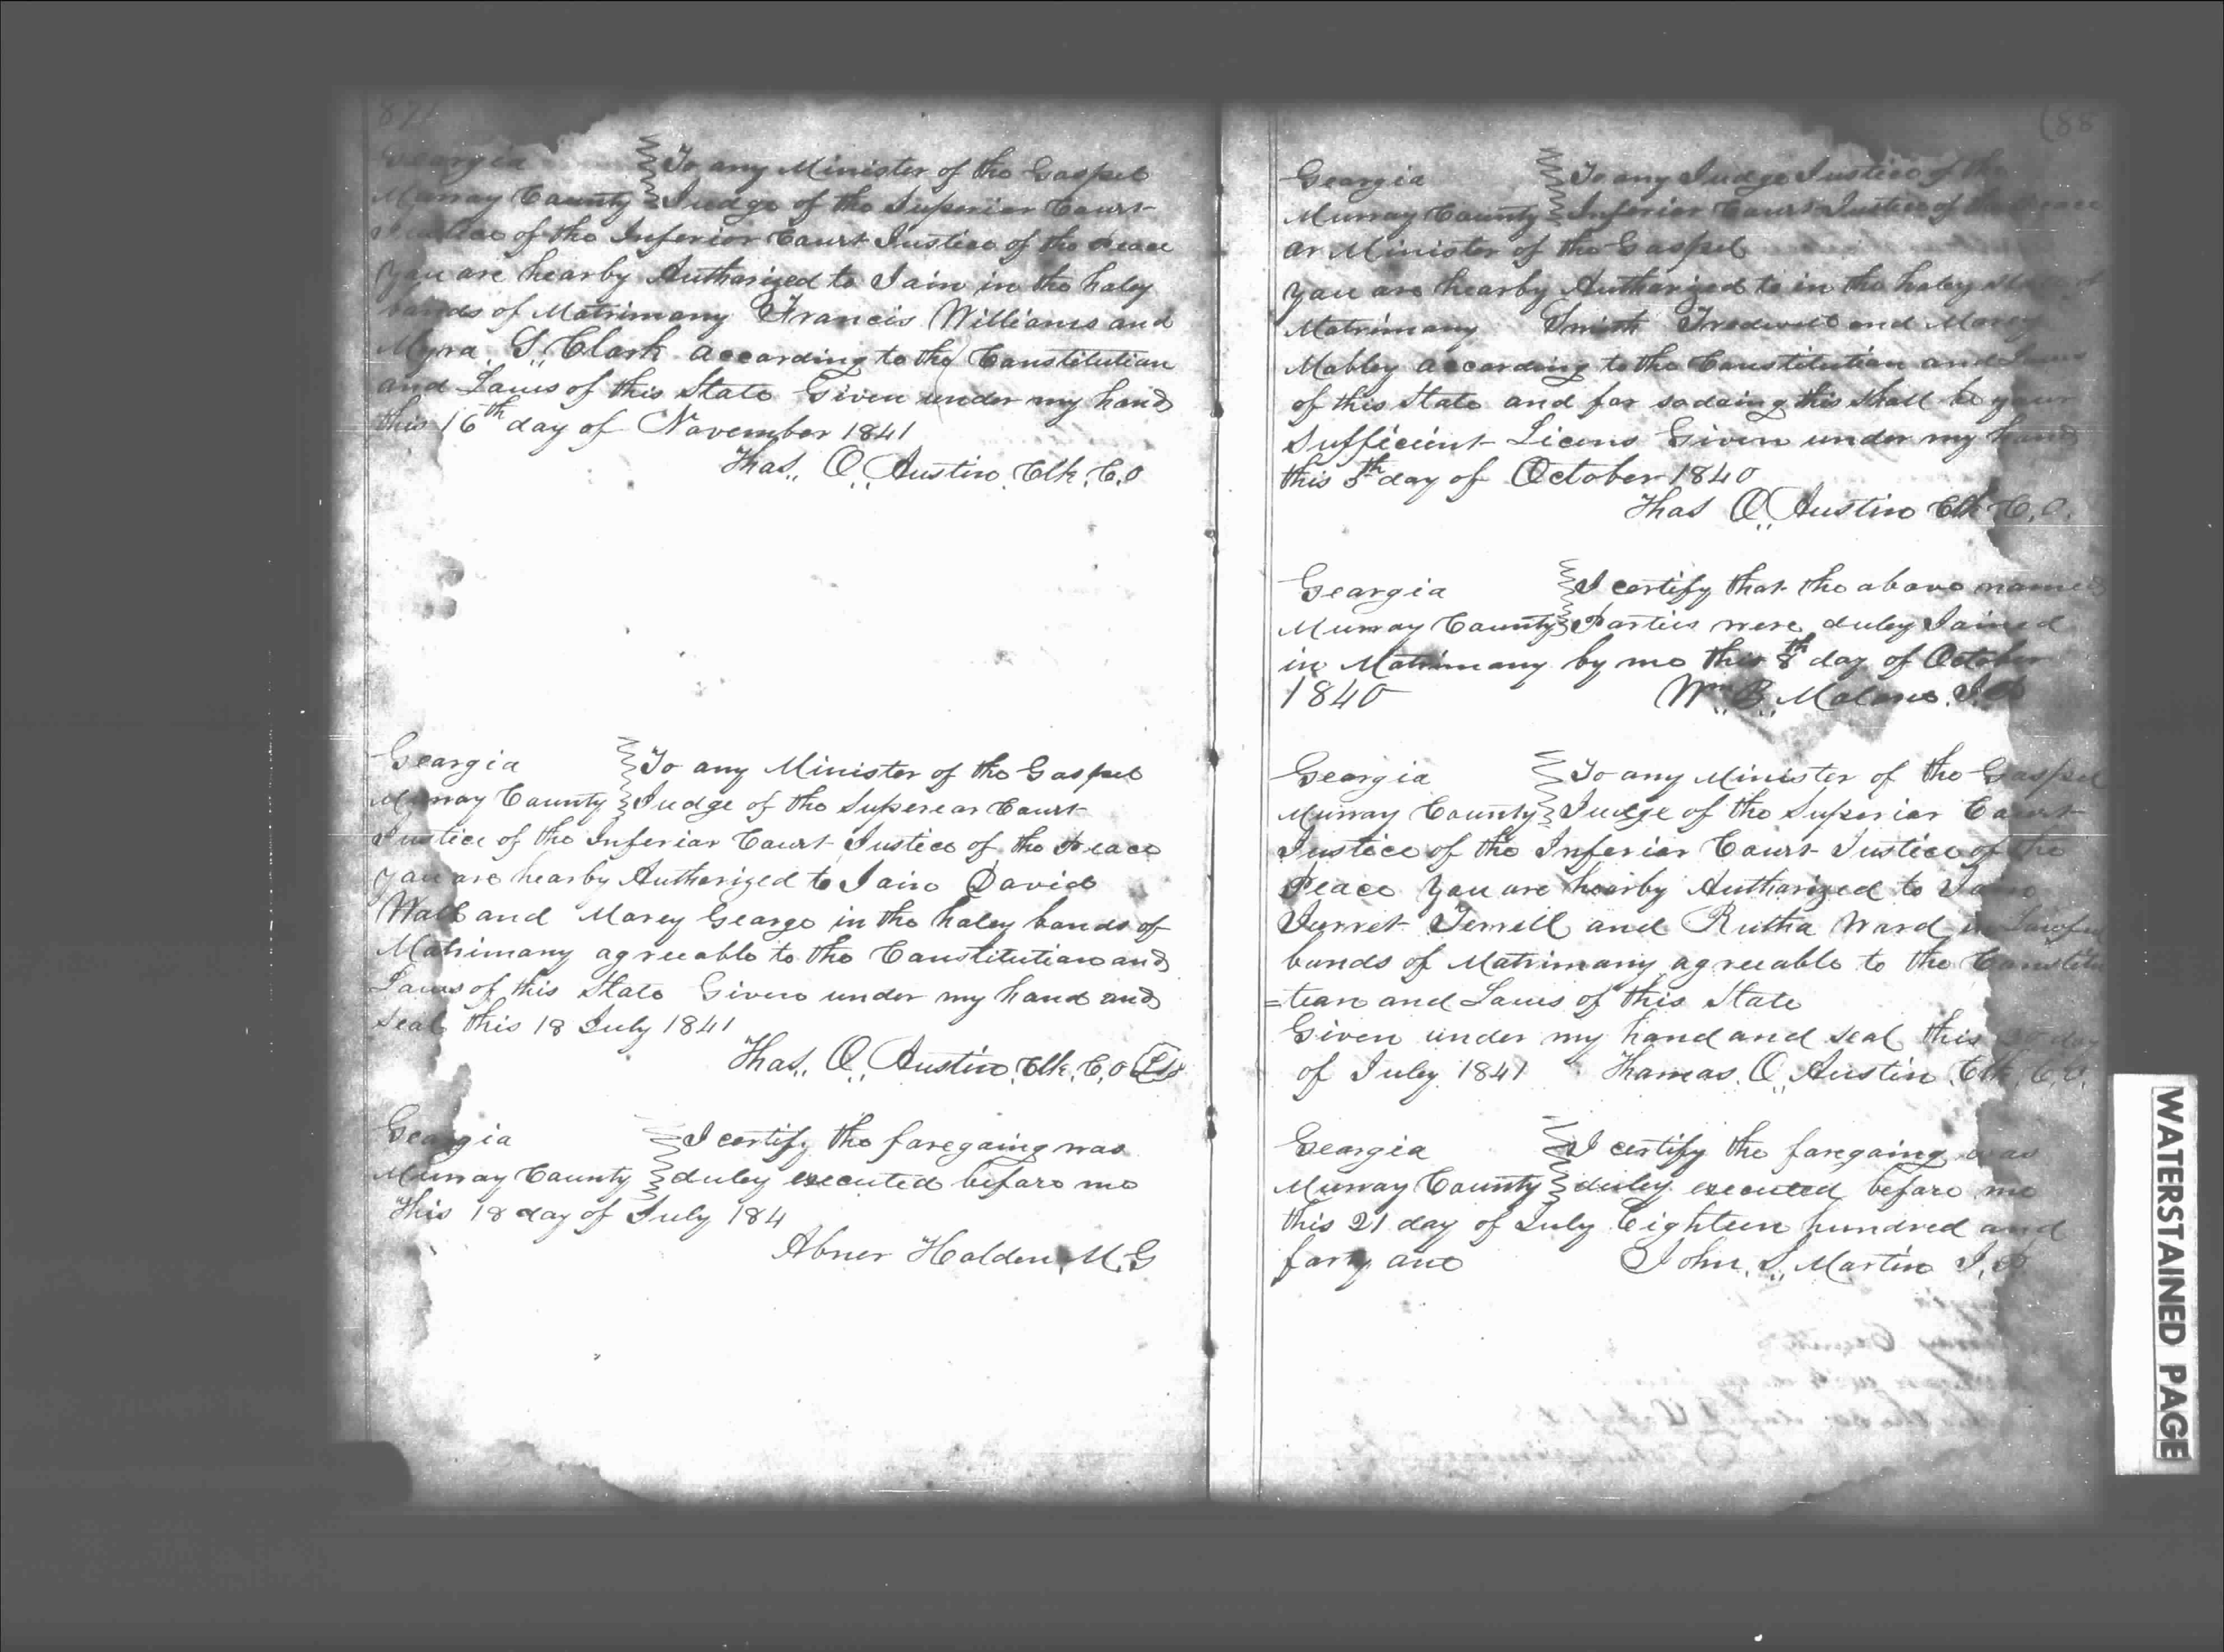 87)
Georgia To any Minister of the Gospel
Murray County Judge of the Superior Court
Justice of the Inferior Court Justice of the Peace
You are hearby Authorized to Join in the holey
bands of Matrimony Francis Williams and
Myra, S,, Clark according to the Constitution
and Laws of this State Given under my hand
this 16th day of November 1841
Thos,, O,, Austin, Clk, C,O
Georgia To any Minister of the Gospel
Murray County Judge of the Superear Court
Justice of the Inferior Court Justice of the Peace
You are hearby Authorized to Join David
Wall and Marey George in the holey bands of
Matrimony agreeable to the Constitution and
Laws of this State Given under my hand and
seal this 18 July 1841
Thos,, O,, Austin, Clk, C,O LS
Georgia I certify the foregoing was
Murray County duley executed before me
This 18 day of July 184
Abner Holden, M,G
(88
Georgia To any Judge Justice of the
Murray County Inferior Court Justice of the Peace
or Minister of the Gospel
You are hearby Authorized to in the holey
Matrimony Smith and Marey
Mobley according to the Constitution and Laws
of this State and for so doing this shall be your
Sufficient Licens Given under my hand
this 5th day of October 1840
Thos O,, Austin Clk C,O,
Georgia I certify that the above named
Murray County Parties were duley Joined
in Matrimony by me this 8th day of October
1840 Wm,, B,, Malone, J,P
Georgia To any Minister of the Gospel
Murray County Judge of the Superior Court
Justice of the Inferior Court Justice of the
Peace You are hearby Authorized to Join
Jurret Terrell and Rutha Ward in Lawful
bands of Matrimony agreeable to the Constitu
=tion and Laws of this State
Given under my hand and seal this day
of July 1841 Thomas, O,, Austin, Clk, C,O,
Georgia I certify the foregoing was
Murray County duley executed before me
this 21 day of July Eighteen hundred and
forty one John, S,, Martin J,P
WATERSTAINED PAGE